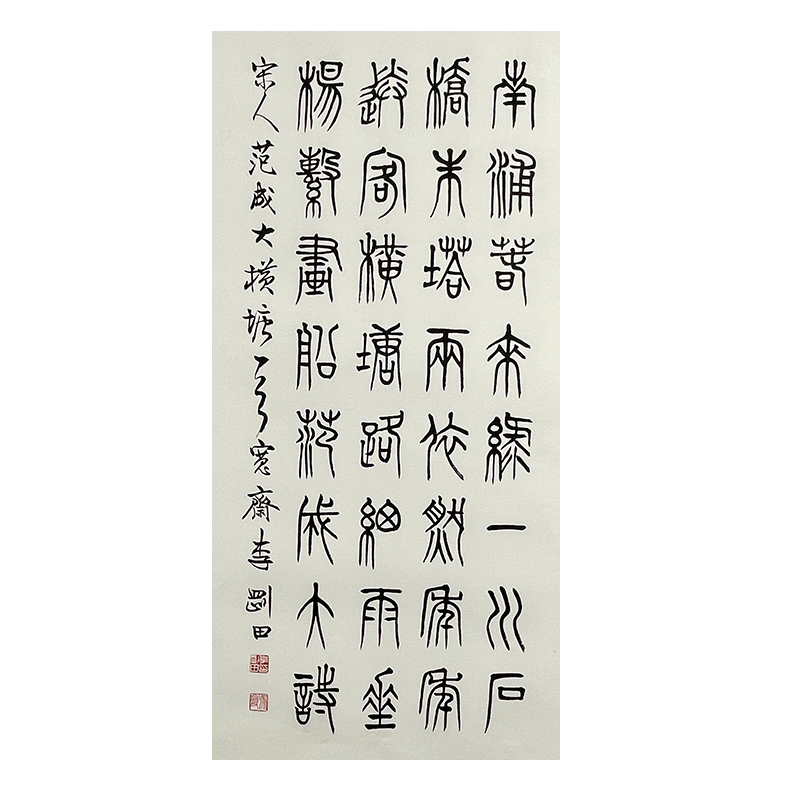 南浦春來綠一川石
橋朱塔兩依然年年
送客橫塘路細雨垂
楊繫畫船范成大詩
宋人范成大橫塘一首寬齋李剛田